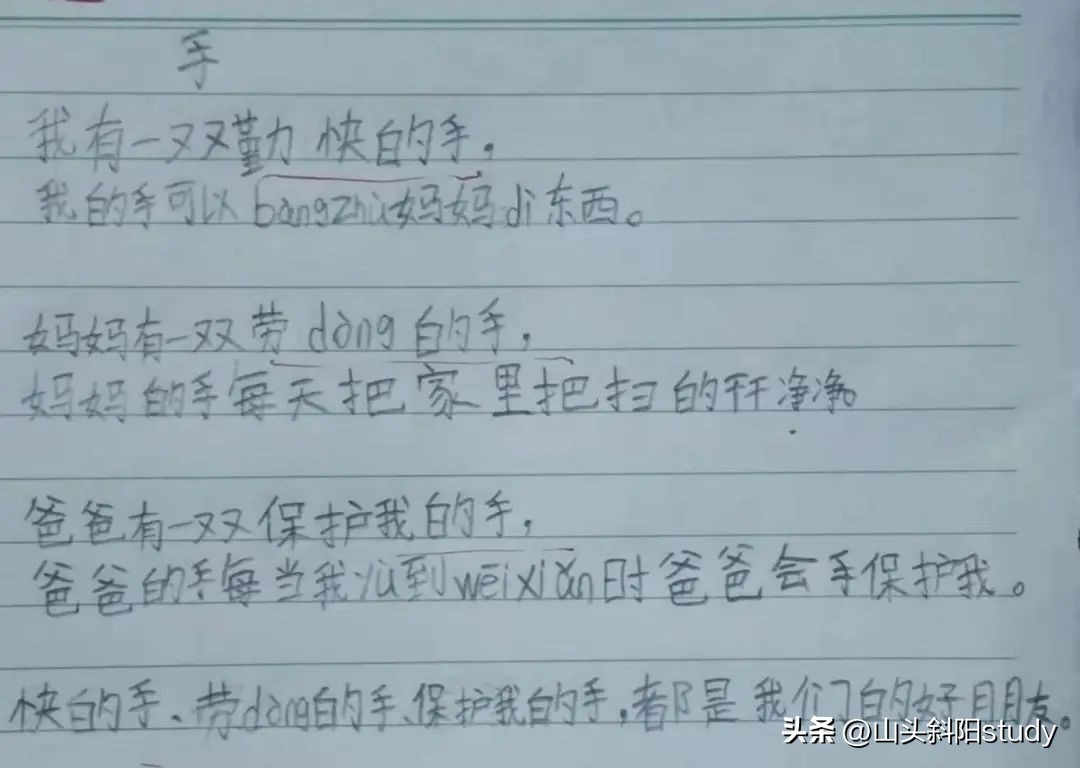 手
我有一双勤快的手。
我的手可以bāngzhù妈妈dì东西。
妈妈有一双劳dòng的手,
妈妈的手每天把家里把扫的干净净。
爸爸有一双保护我的手,
爸爸的手每当我yù到wēixiǎn时爸爸会手保护我。
快的手、劳dòng的手、保护我的手,都是我们的好朋友。
头条 @山头斜阳study